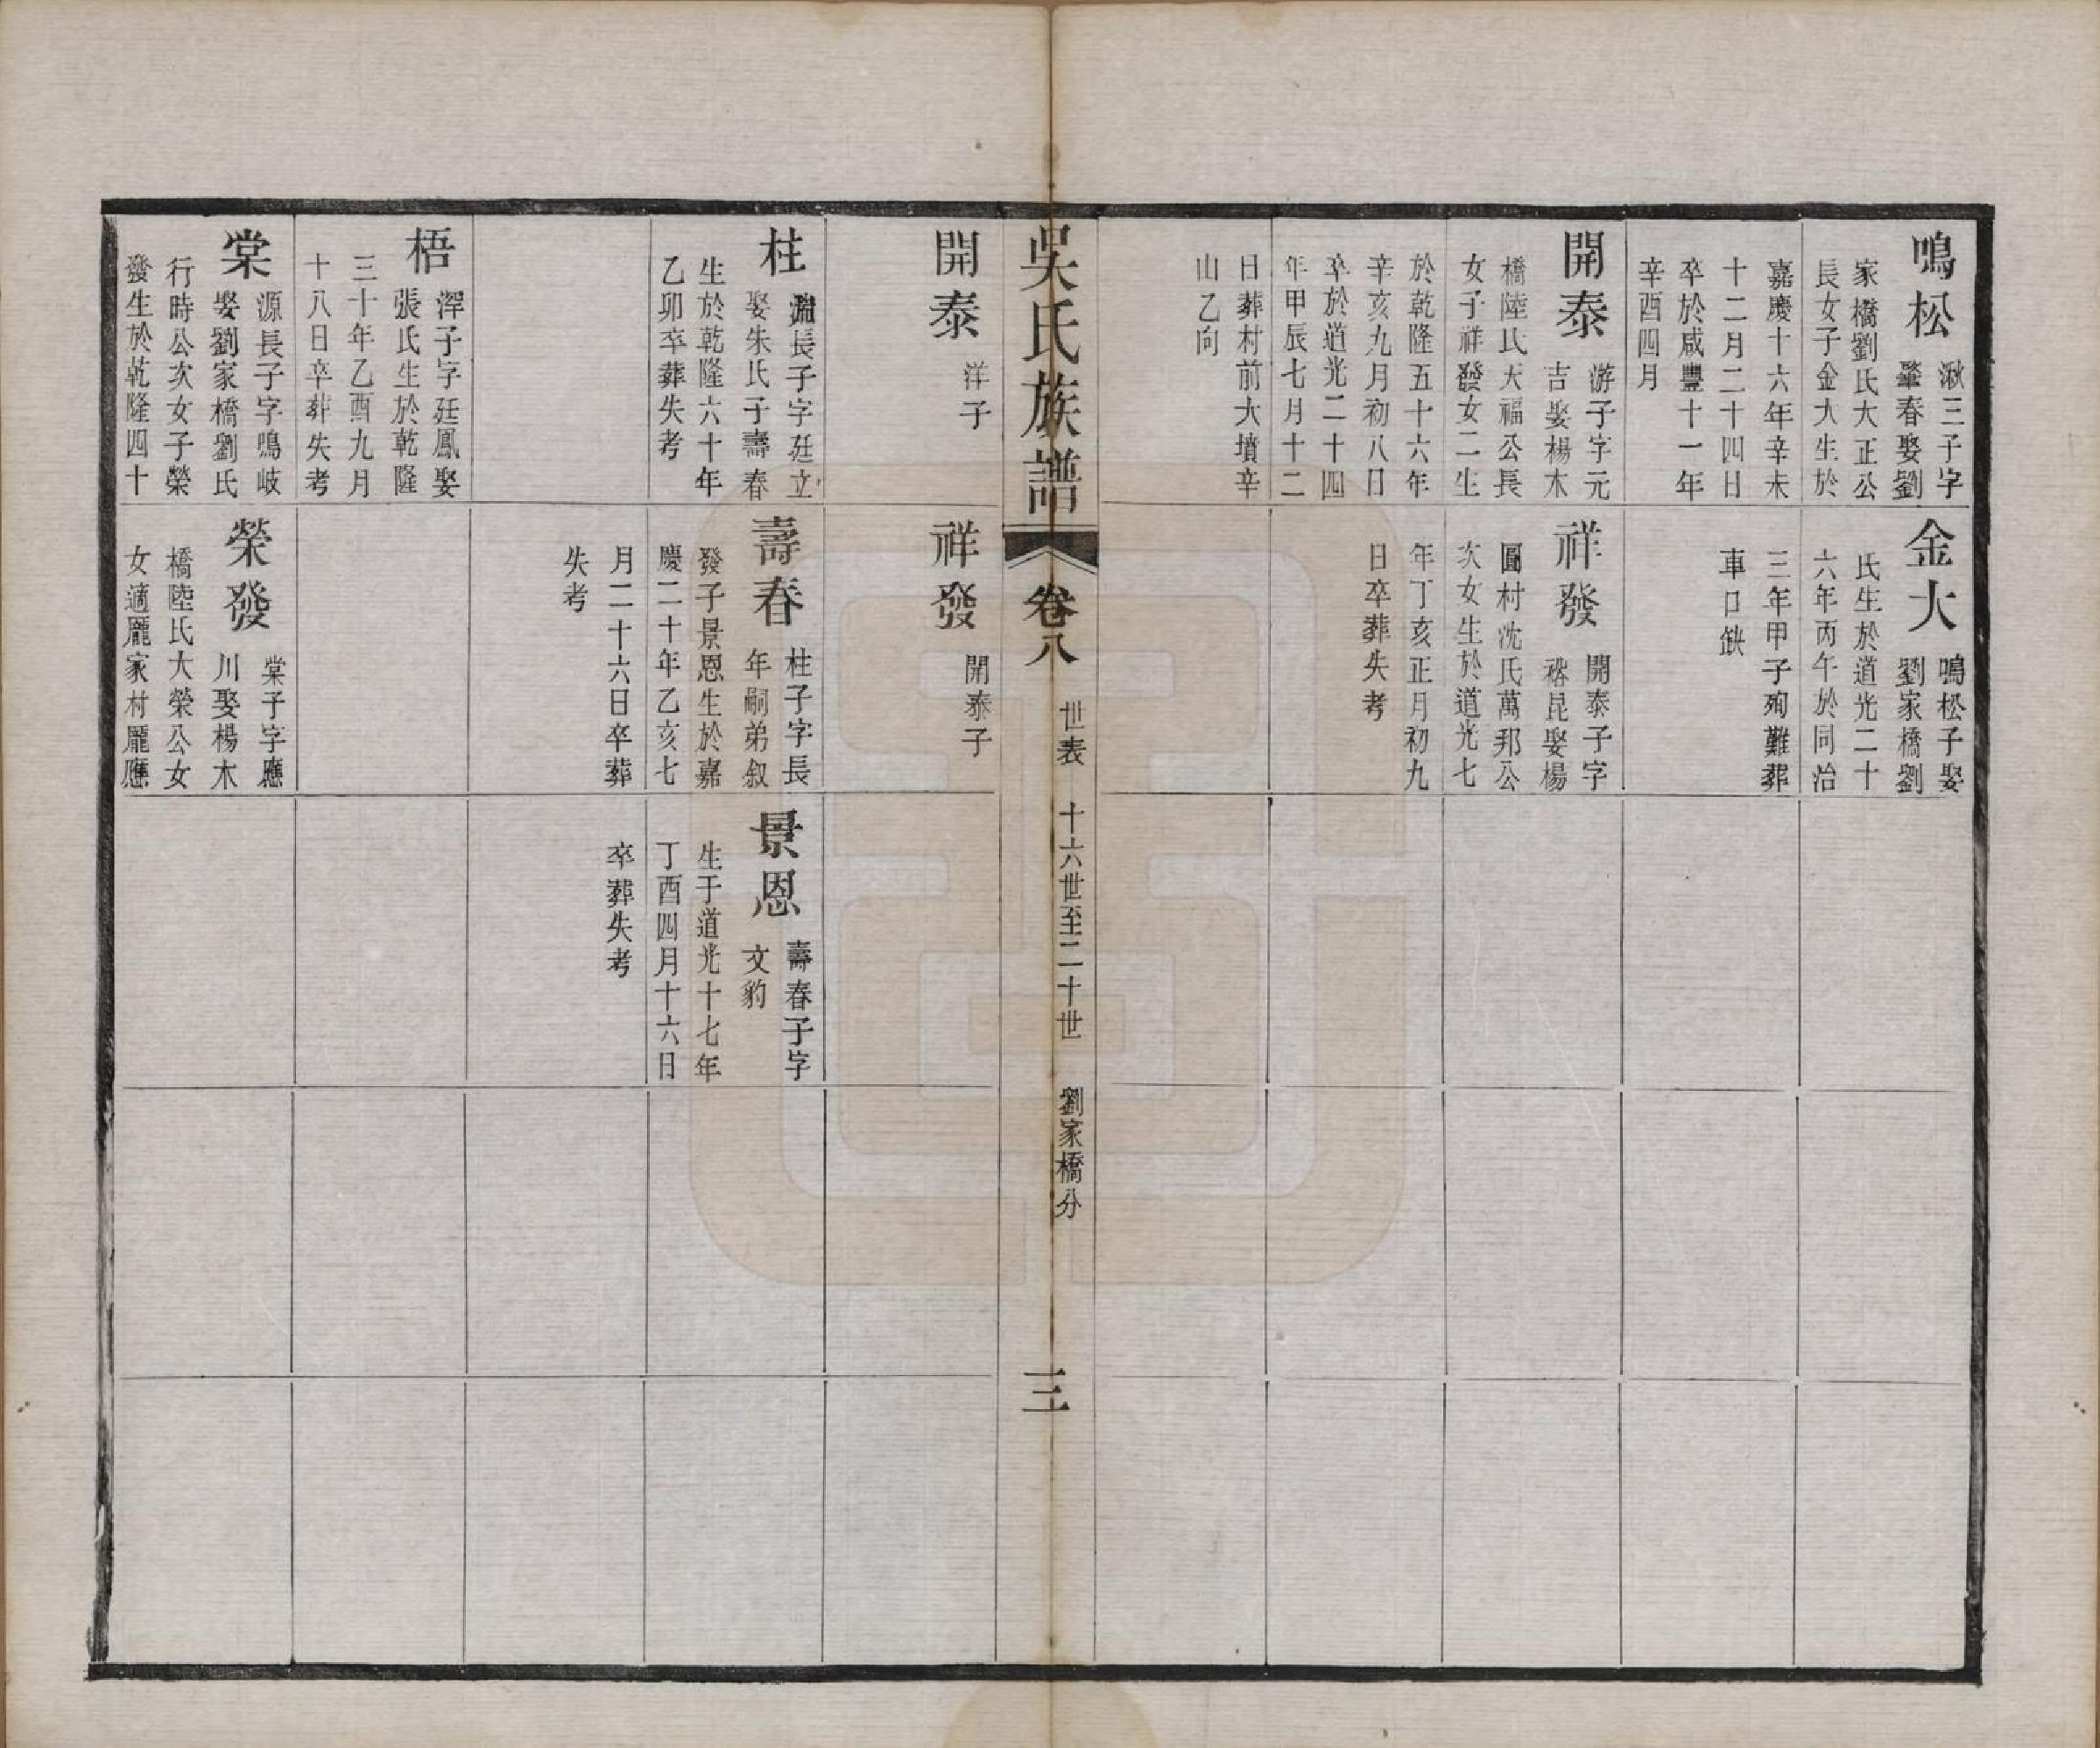 鳴松
湫三子字
肇春娶劉
家橋劉氏大正公
長女子金大生於
嘉慶十六年辛未
十二月二十四日
卒於咸豐十一年
辛酉四月
開泰
游子字元
吉娶楊木
橋陸氏天福公長
女子祥發女二生
於乾隆五十六年
辛亥九月初八日
卒於道光二十四
年甲辰七月十二
日葬村前大墳辛
山乙向
金大
鳴松子娶
劉家橋劉
氏生於道光二十
六年丙午於同治
三年甲子殉難葬
車口缺
祥發
開泰子字
裕昆娶楊
圓村沈氏萬邦公
次女生於道光七
年丁亥正月初九
日卒葬失考
吳氏族譜
卷八
世表
十六世至二十世
劉家橋分
三
開泰
洋子
柱
長子字廷立
娶朱氏子壽春
生於乾隆六十年
乙卯卒葬失考
梧
渾子字廷鳳娶
張氏生於乾隆
三十年乙酉九月
十八日卒葬失考
棠
源長子字鳴岐
娶劉家橋劉氏
行時公次女子榮
發生於乾隆四十
祥發
開泰子
壽春
柱子字長
年嗣弟叙
發子景恩生於嘉
慶二十年乙亥七
月二十六日卒葬
失考
榮發
棠子字應
川娶楊木
橋陸氏大榮公女
女適龎家村龎應
景恩
壽春子字
文豹
生于道光十七年
丁酉四月十六日
卒葬失考